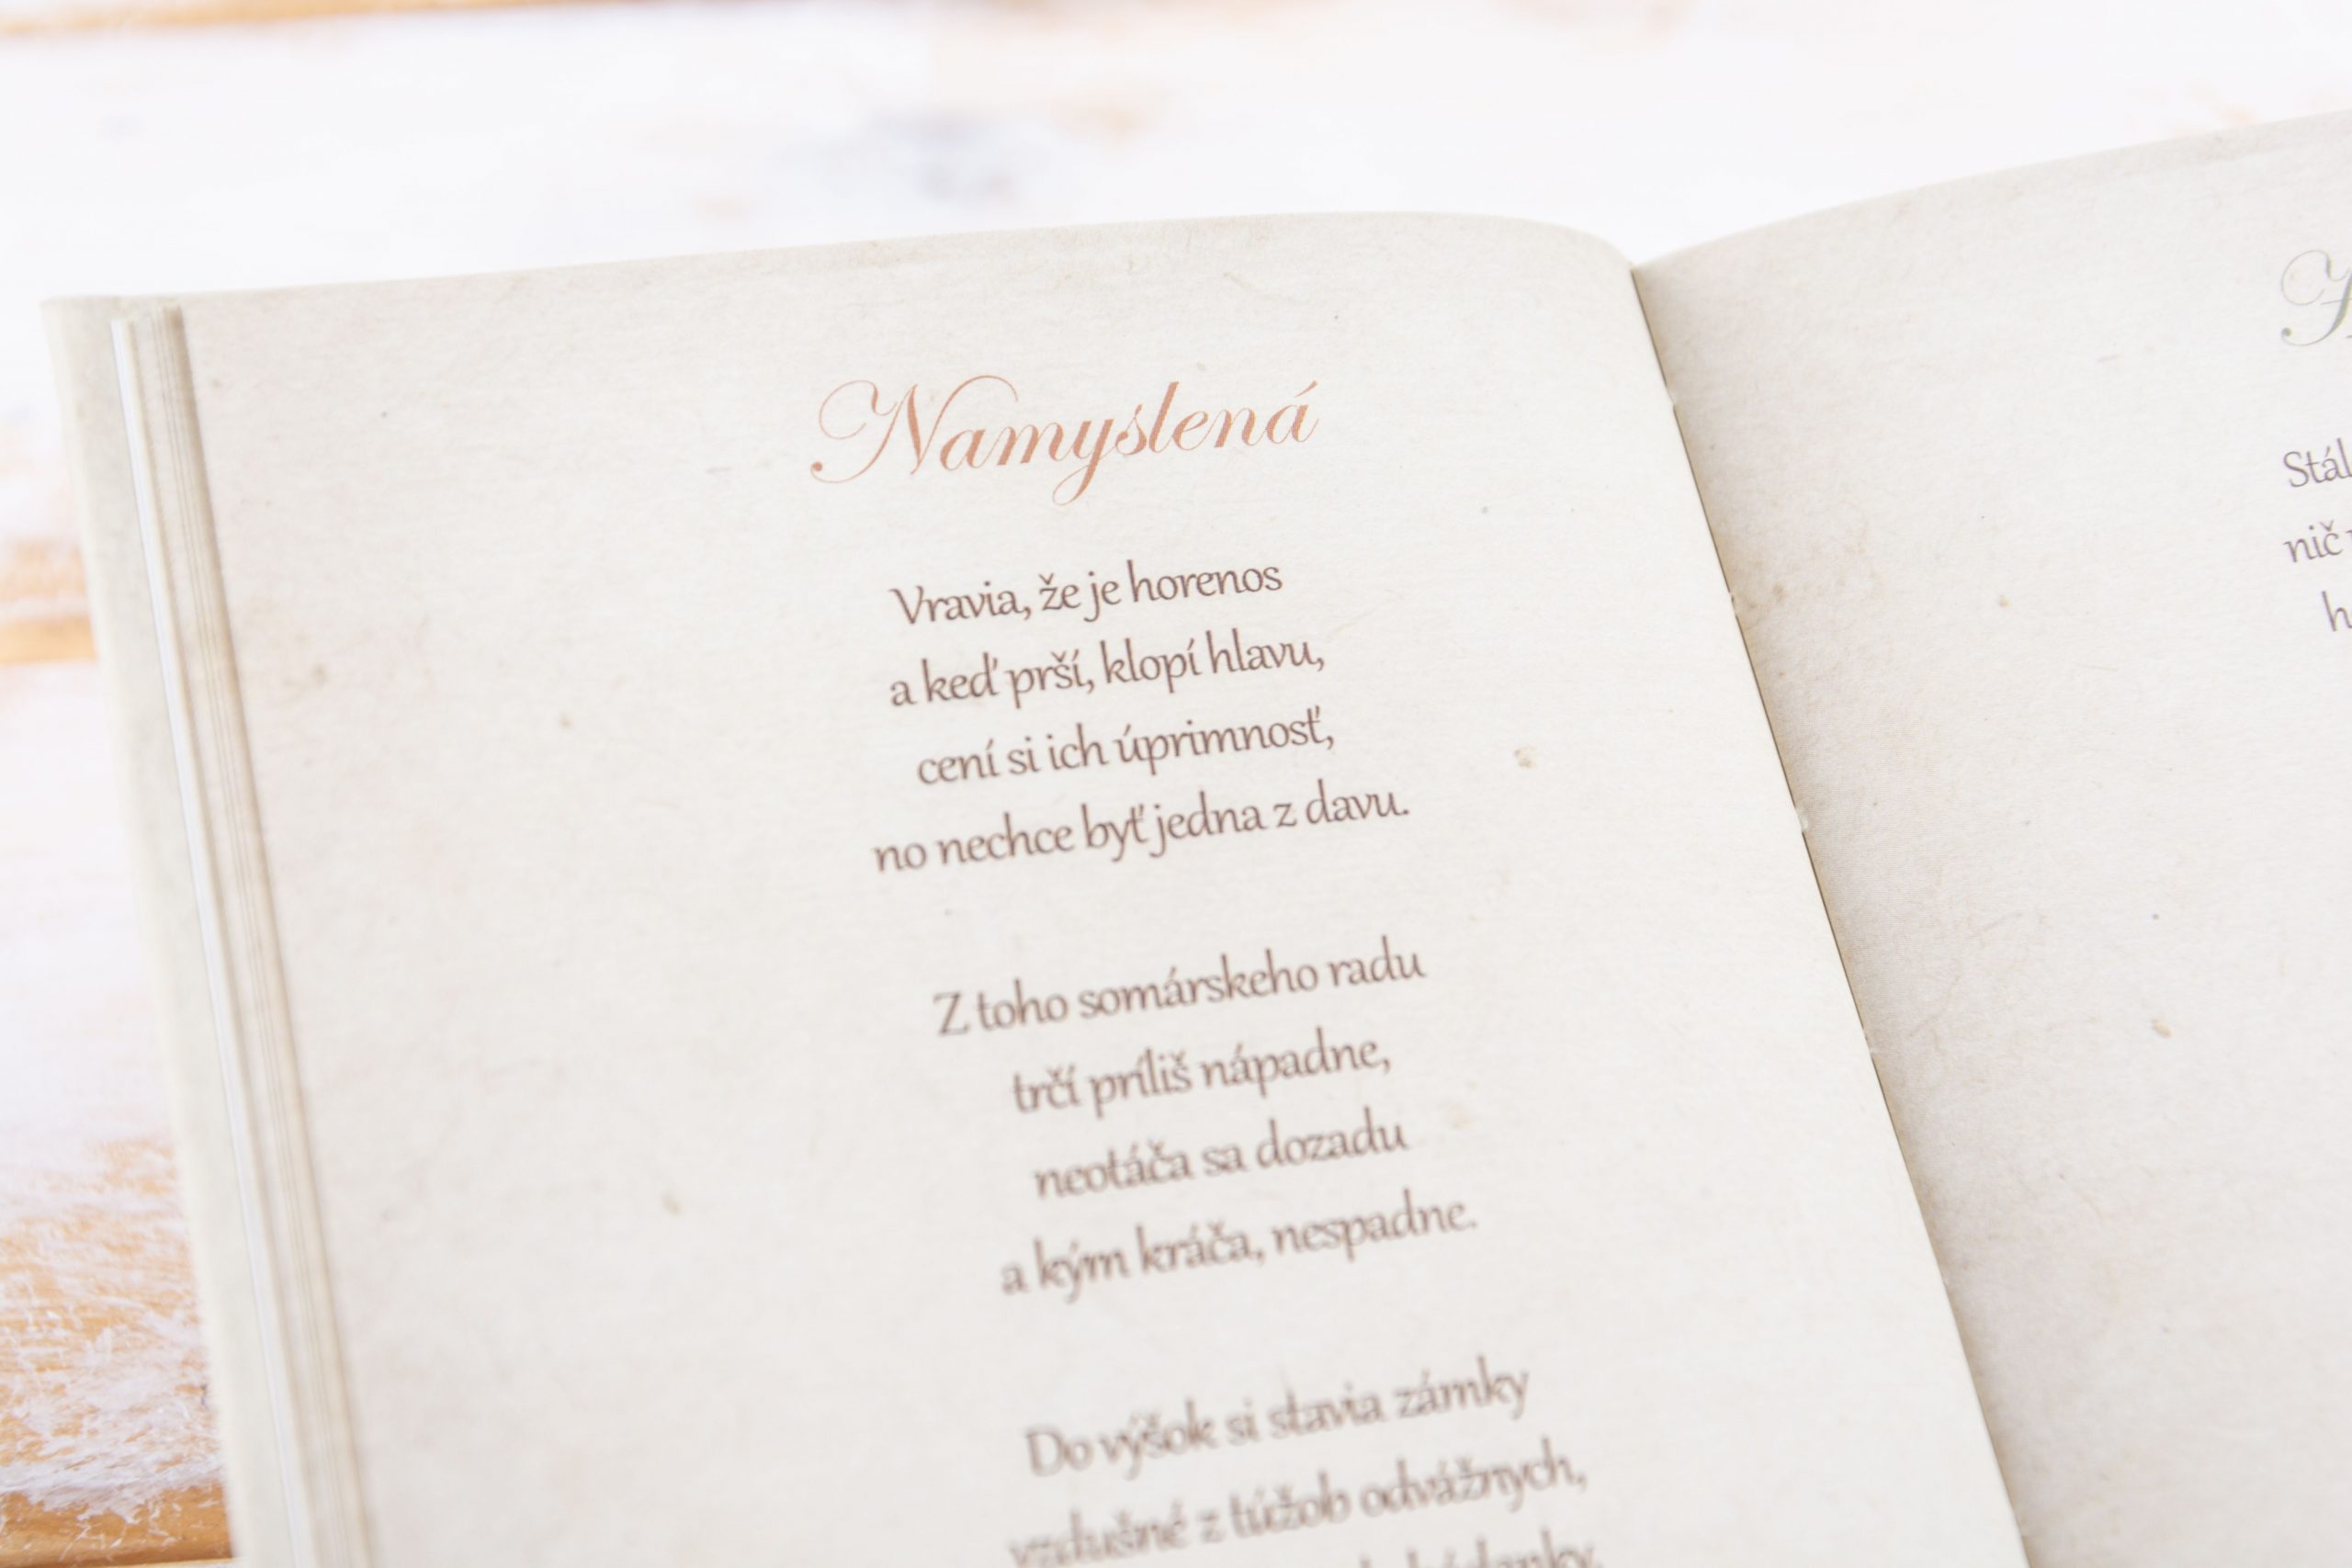 Namyslená
Vravia, že je horenos
a keď prší, klopí hlavu,
cení si ich úprimnosť,
no nechce byť jedna z davu.
Z toho somárskeho radu
trčí príliš nápadne,
neotáča sa dozadu
a kým kráča, nespadne.
Do výšok si stavia zámky
vzdušné z túžob odvážnych,
nič